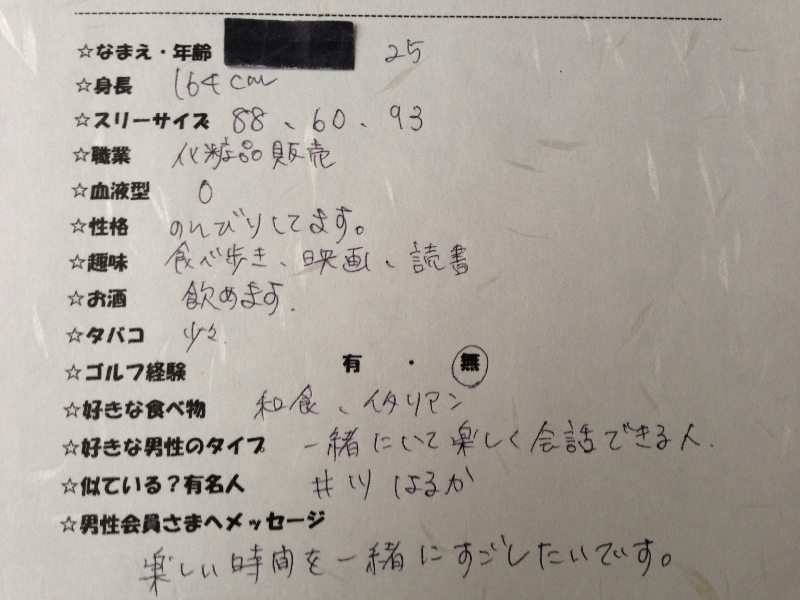 ☆なまえ・年齢 25
☆身長 164cm
☆スリーサイズ 88、60、93
☆職業 化粧品販売
☆血液型 O
☆性格 のんびりしてます。
☆趣味 食べ歩き、映画、読書
☆お酒 飲めます.
☆タバコ 少々
☆ゴルフ経験 有・無
☆好きな食べ物 和食、イタリアン
☆好きな男性のタイプ 一緒にいて楽しく会話できる人.
☆似ている？有名人 井川はるか
☆男性会員さまへメッセージ
楽しい時間を一緒にすごしたいです。